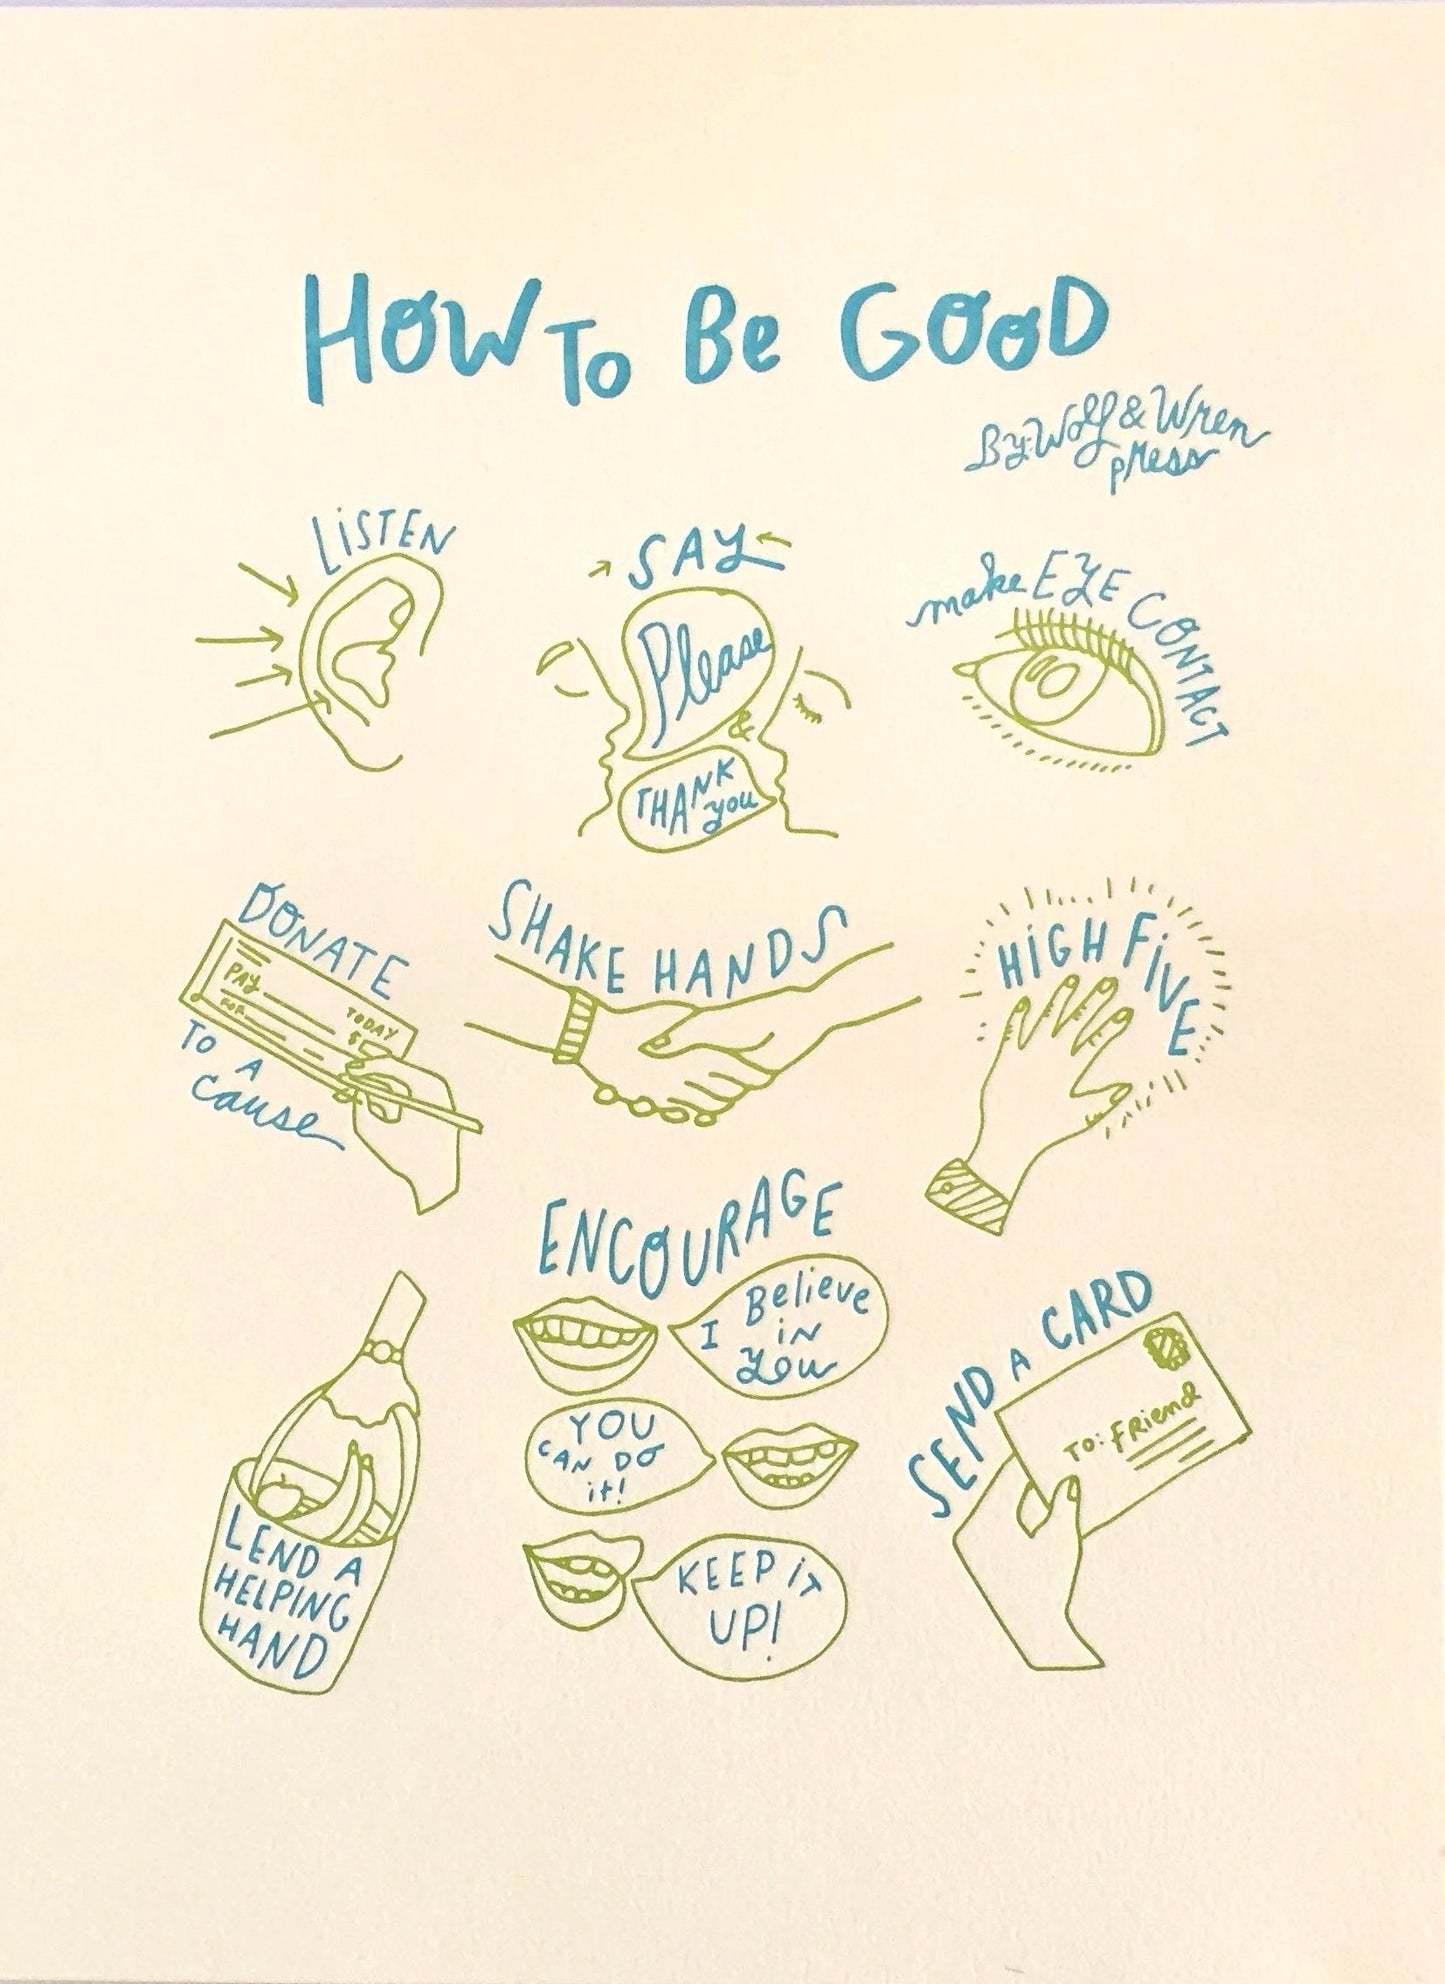 HOW To Be GOOD
By: Wolf & Wren
press
LiSTEN
SAY
Please
&
THANK
you
make EYE CONTACT
DONATE
PAY
TODAY
FOR
$
TO A
cause
SHAKE HANDS
HiGH FiVE
LEND A
HELPING
HAND
ENCOURAGE
I Believe
iN
You
YOU
CAN DO
it!
KEEP iT
UP!
SEND A CARD
TO: FRiend